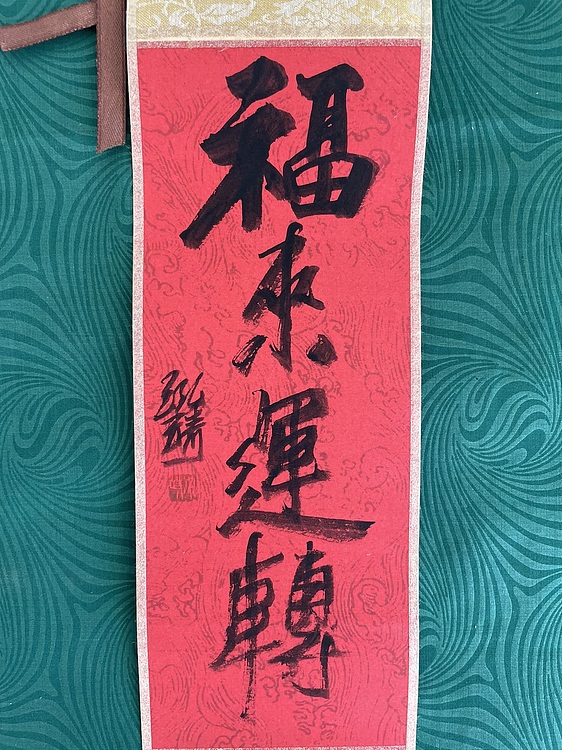 福來運轉